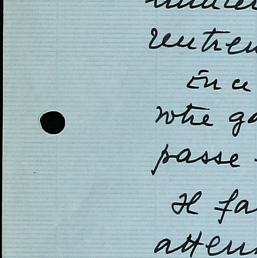 rentren
En ce
votre ga
passe
Il fa
atten